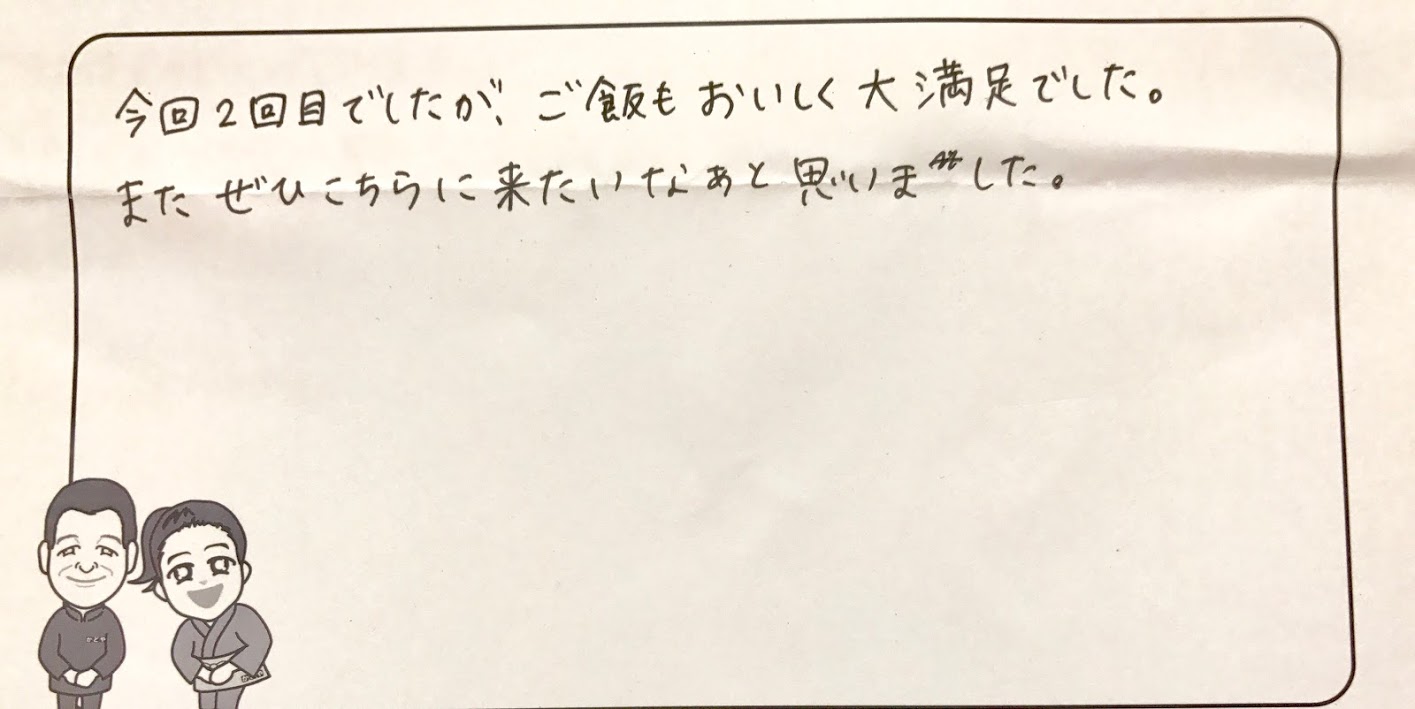 今回2回目でしたが、ご飯もおいしく大満足でした。
またぜひこちらに来たいなぁと思いました。